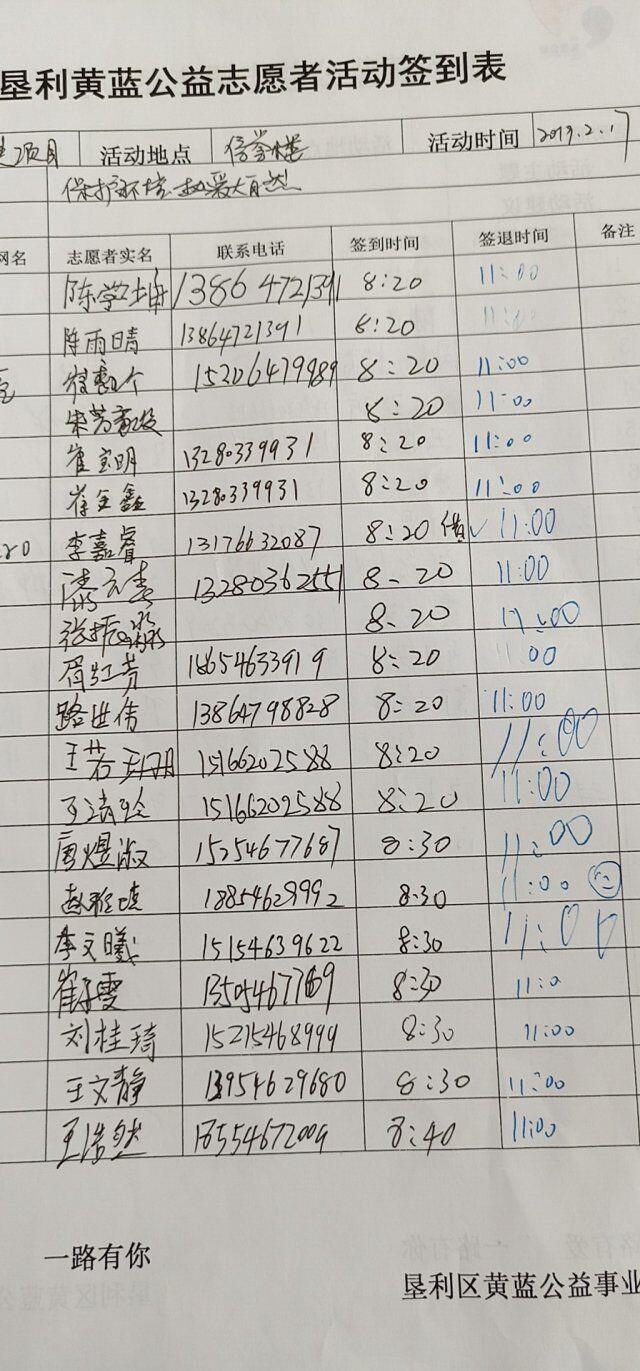 垦利黄蓝公益志愿者活动签到表
项目 活动地点 信誉楼 活动时间 2019.2.17
保护环境 热爱大自然
网名 志愿者实名 联系电话 签到时间 签退时间 备注
陈学坤 13864721391 8:20 11:00
陈雨晴 13864721391 8:20 11:00
15206479989 8:20 11:00
8:20 11:00
崔宝明 13280339931 8:20 11:00
崔金鑫 13280339931 8:20 11:00
李嘉睿 13176632087 8:20 11:00
13280362551 8-20 11:00
张振 8-20 11:00
18654633919 8:20 11:00
路世伟 13864798828 8:20 11:00
王若玥 15166202588 8:20 11:00
15166202588 8:20 11:00
唐煜淑 15254677687 8:30 11:00
赵雅 18854628992 8:30 11:00
李文曦 15154639622 8:30 11:00
崔子雯 8:30 11:0
刘桂琦 15215468999 8:30 11:00
王文静 13954629680 8:30 11:00
王浩然 8:40 11:00
一路有你
垦利区黄蓝公益事业